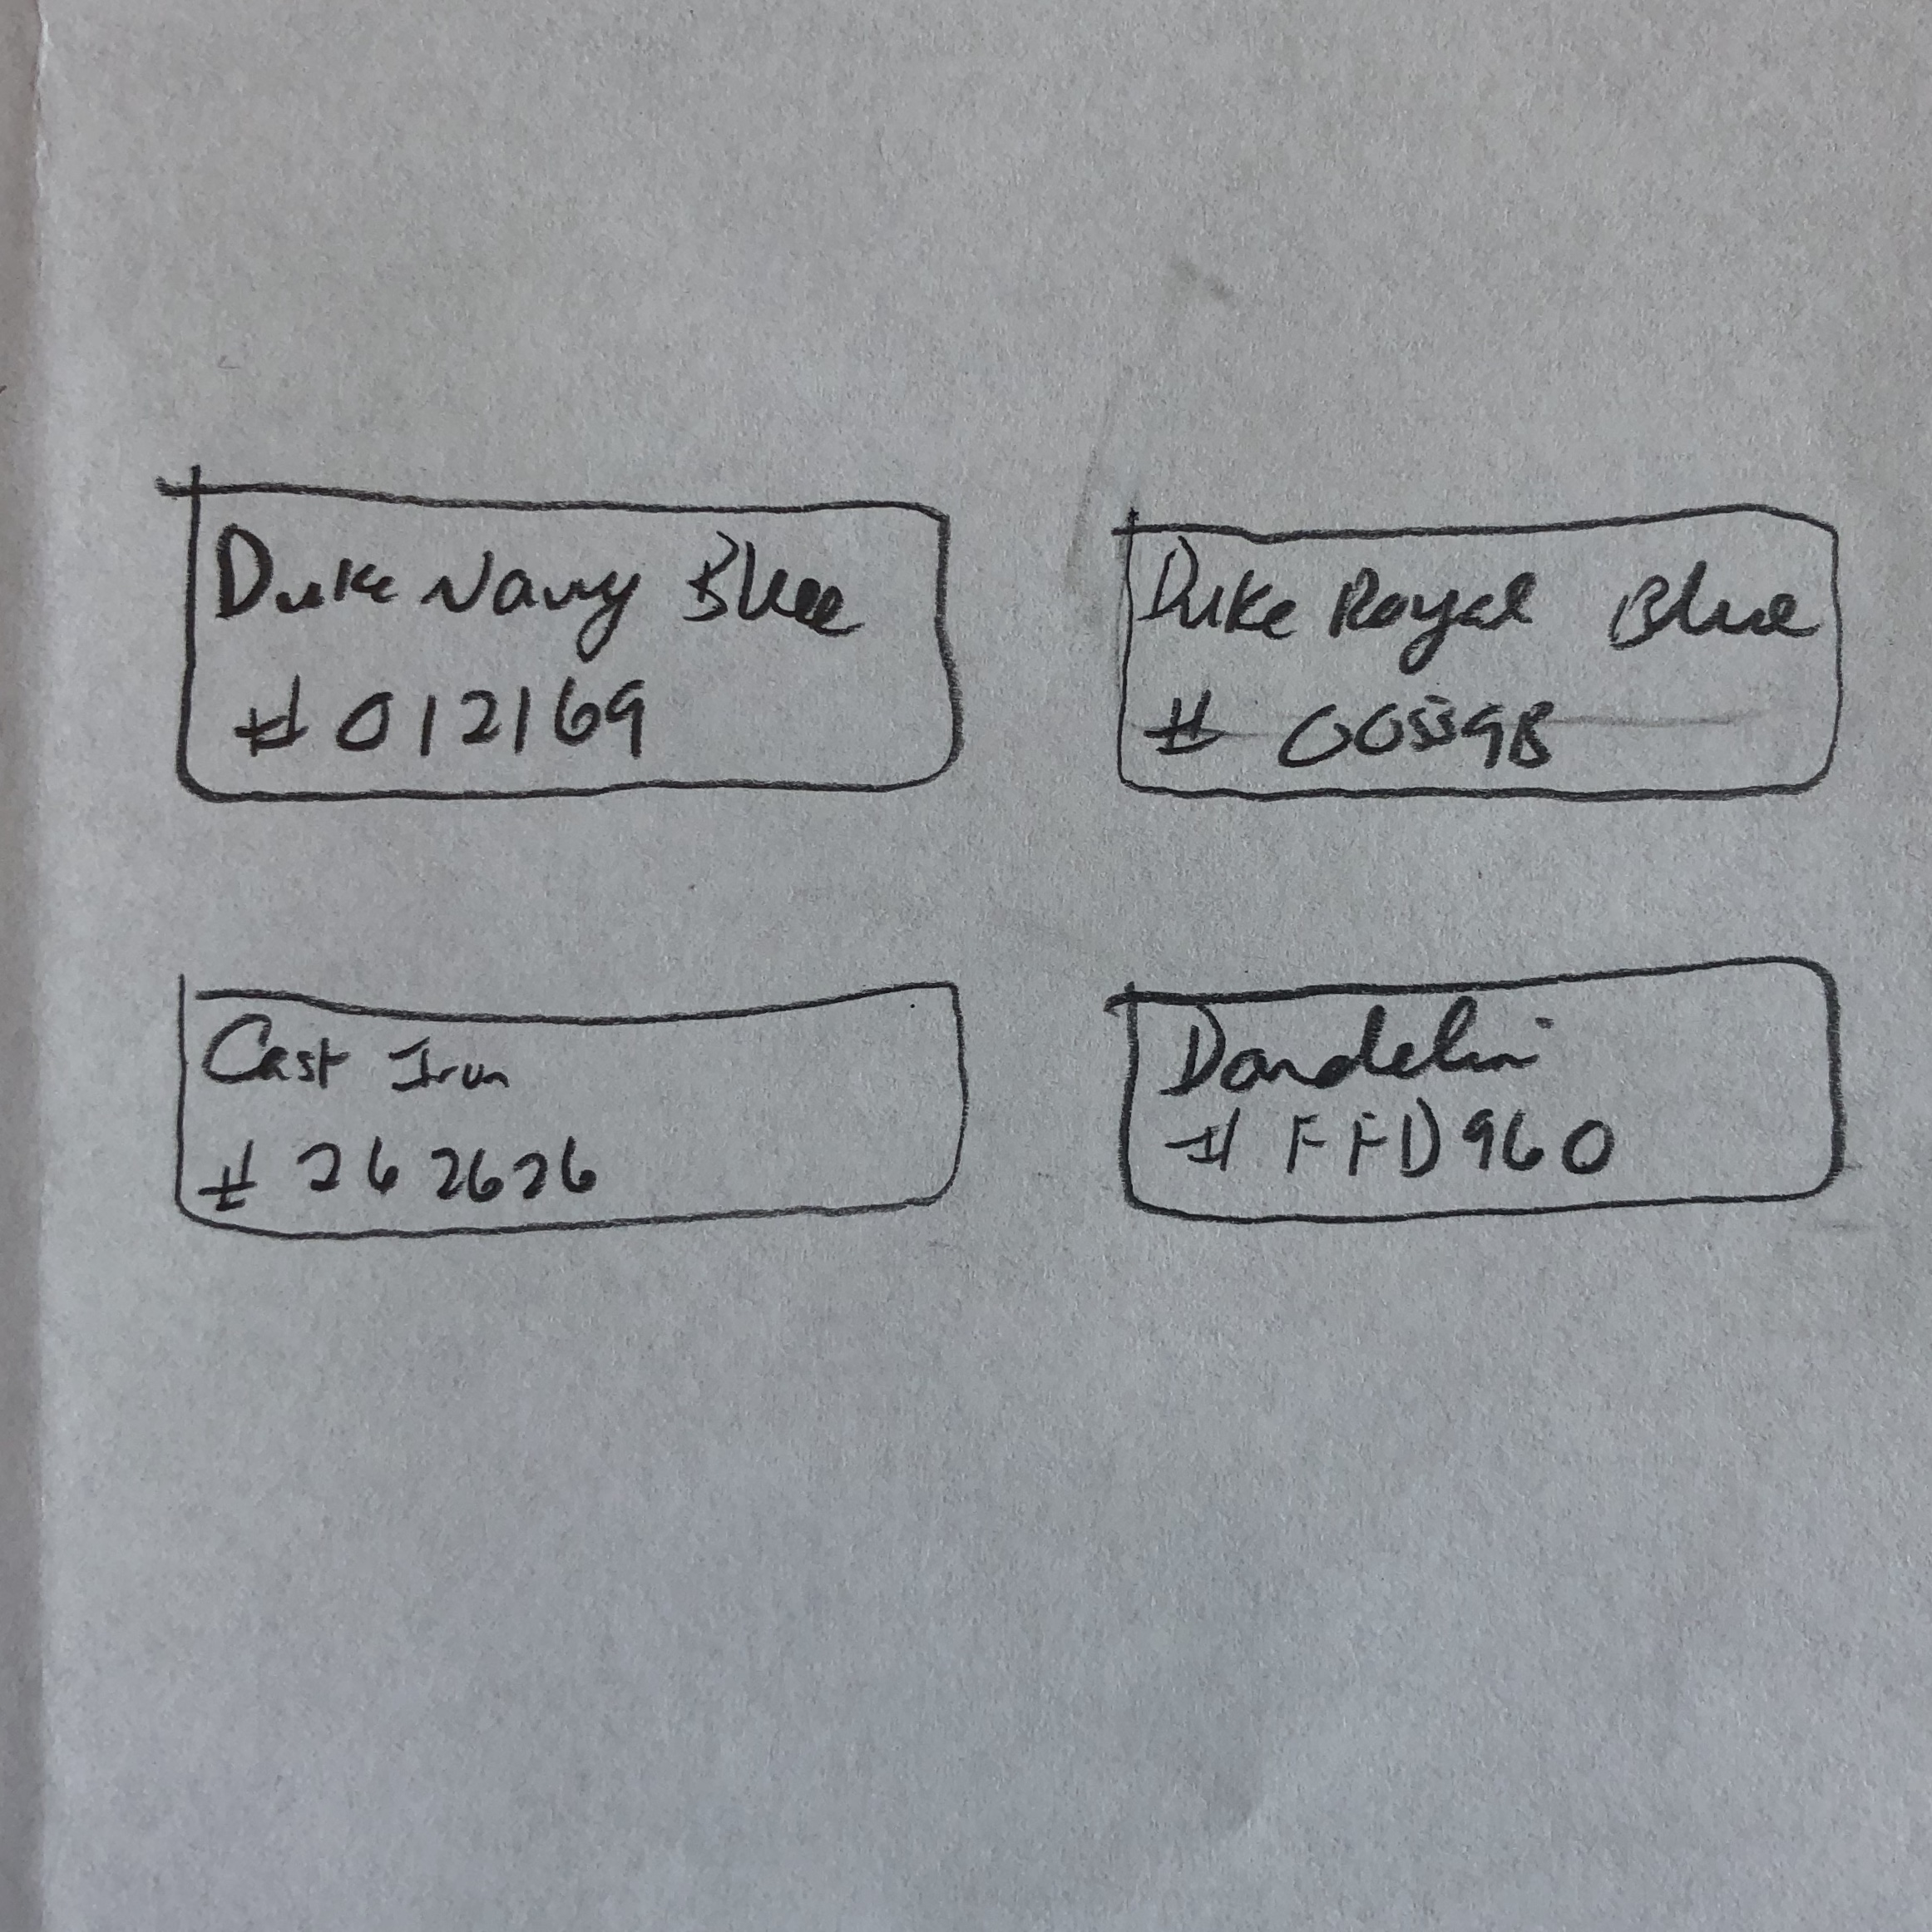 Duke Navy Blue
# 012169
Duke Royal Blue
# 00539B
Cast Iron
# 262626
Dandelion
# FFD960